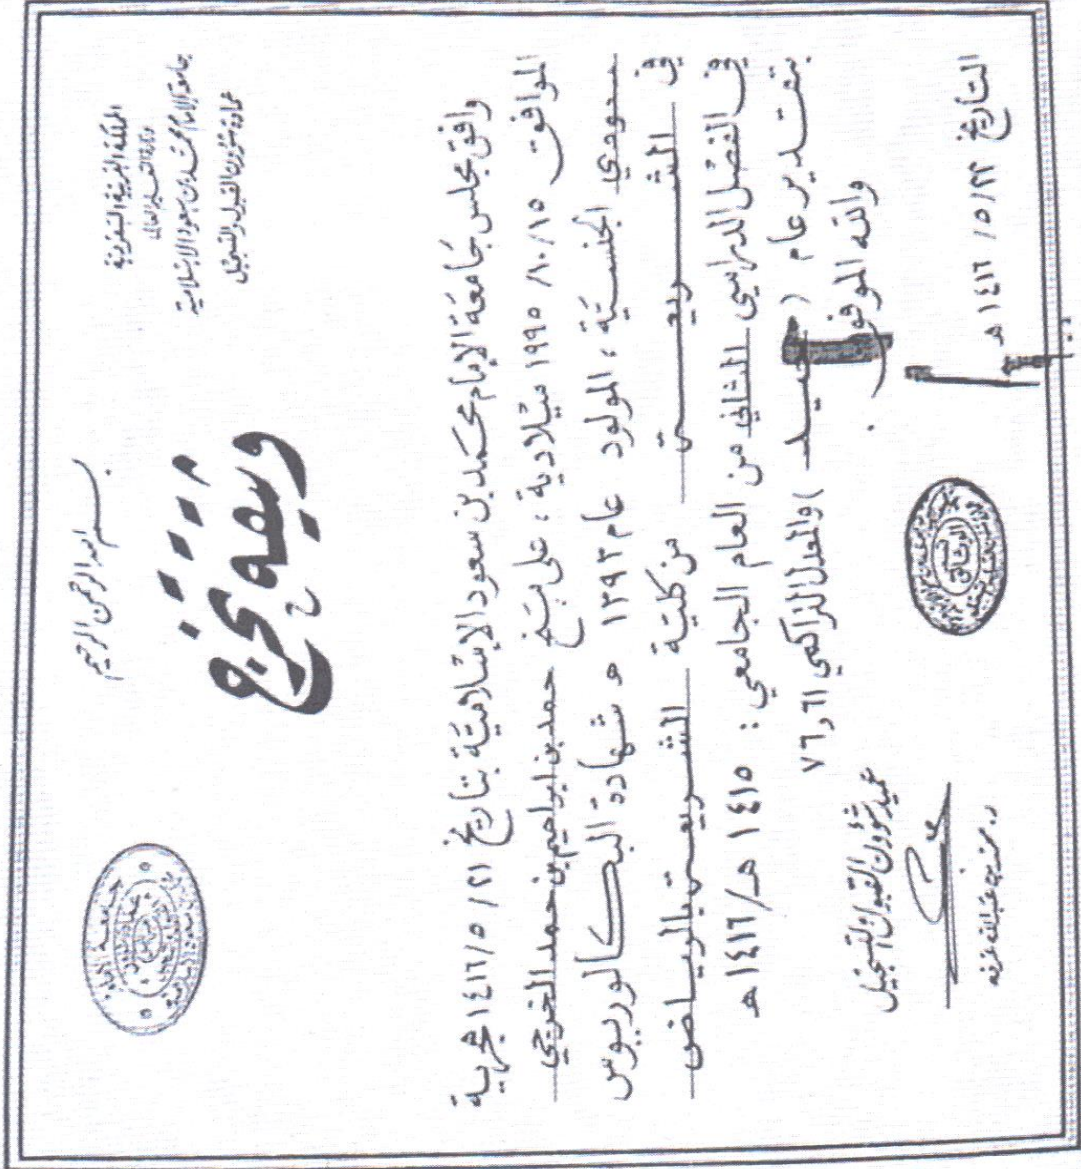 بسم الله الرحمن الرحيم
المملكة العربية السعودية
وزارة التعليم العالي
جامعة الإمام محمد بن سعود الإسلامية
عمادة شؤون القبول والتسجيل
وثيقة تخرج
وافق مجلس جامعة الإمام محمد بن سعود الإسلامية بتاريخ ٢١ /٥ /١٤١٦ هجرية
الموافق ١٥ /١٠ /١٩٩٥ ميلادية ، على منح حمد بن ابراهيم بن حمد الخرجي
سعودي الجنسية ، المولود عام ١٣٩٣ هـ شهادة البكالوريوس
في الشريعة من كلية الشريعة بالرياض
في الفصل الدراسي الثاني من العام الجامعي : ١٤١٥ هـ/١٤١٦ هـ
بتقدير عام ( جيد ) والمعدل التراكمي ٧٦٫٦١
والله الموفق
التاريخ ٢٢ /٥ /١٤١٦ هـ
عميد شؤون القبول والتسجيل